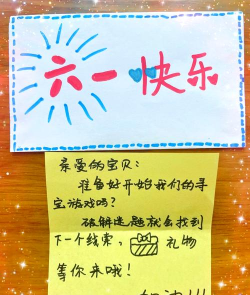 六一快乐
亲爱的宝贝：
准备好开始我们的寻
宝游戏吗？
破解迷题就会找到
下一个线索，礼物
等你来哦！